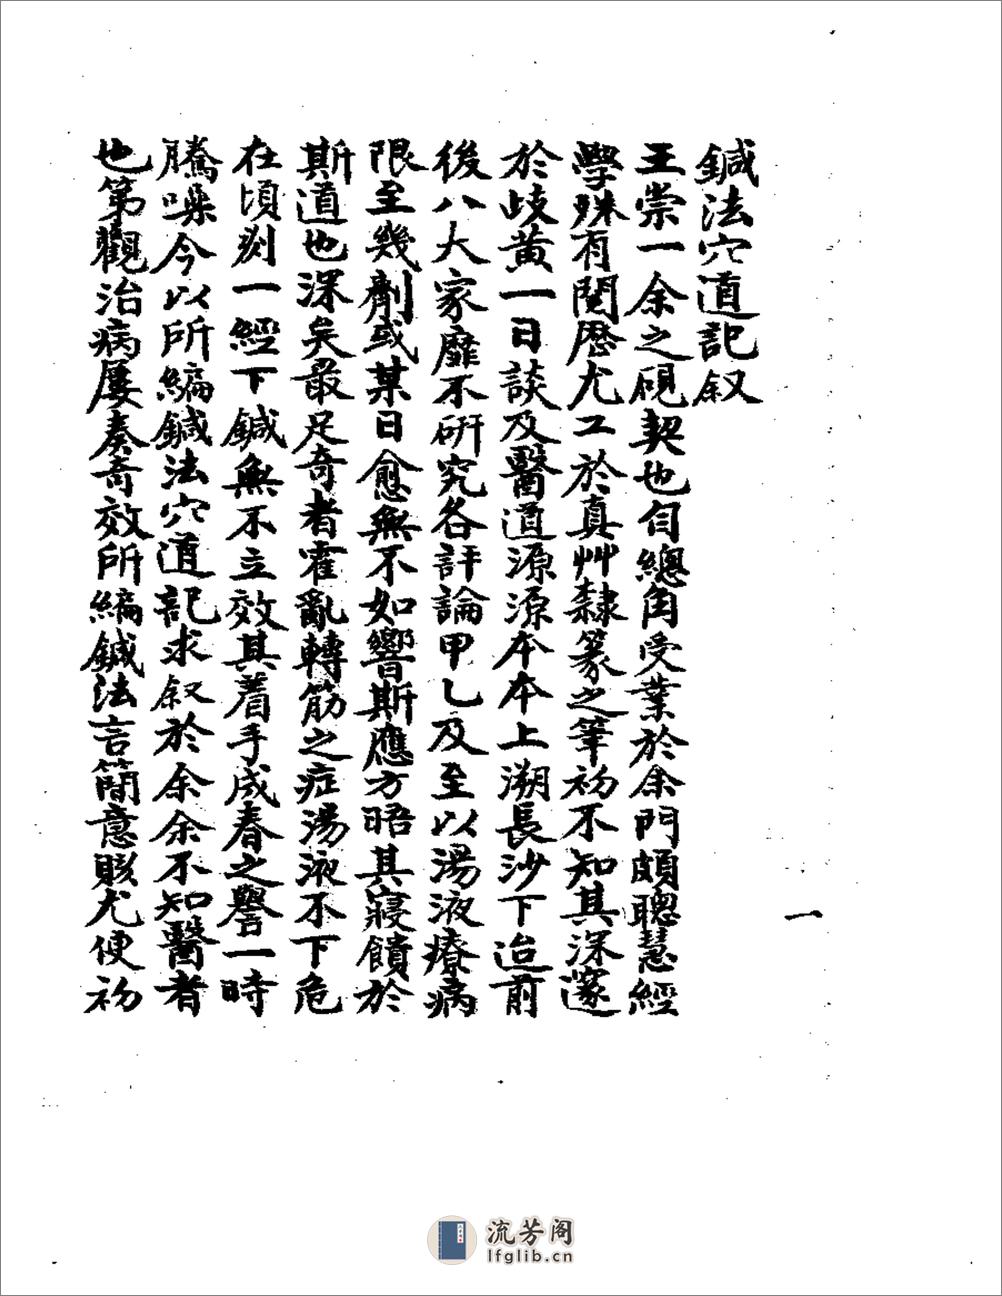 鍼法穴道記叙
王崇一余之硯契也自總角受業於余門頗聰慧經
學殊有閱歷尤工於真艸隸篆之筆初不知其深邃
於歧黄一日談及醫道源源本本上溯長沙下迨前
後八大家靡不研究各評論甲乙及至以湯液療病
限至幾劑或某日愈無不如響斯應方晤其寢饋於
斯道也深矣最足奇者霍亂轉筋之症湯液不下危
在頃刻一經下鍼無不立效其着手成春之譽一時
騰噪今以所編鍼法穴道記求叙於余余不知醫者
也第觀治病屡奏奇效所編鍼法言簡意賅尤便初
一
流芳阁
lfglib.cn